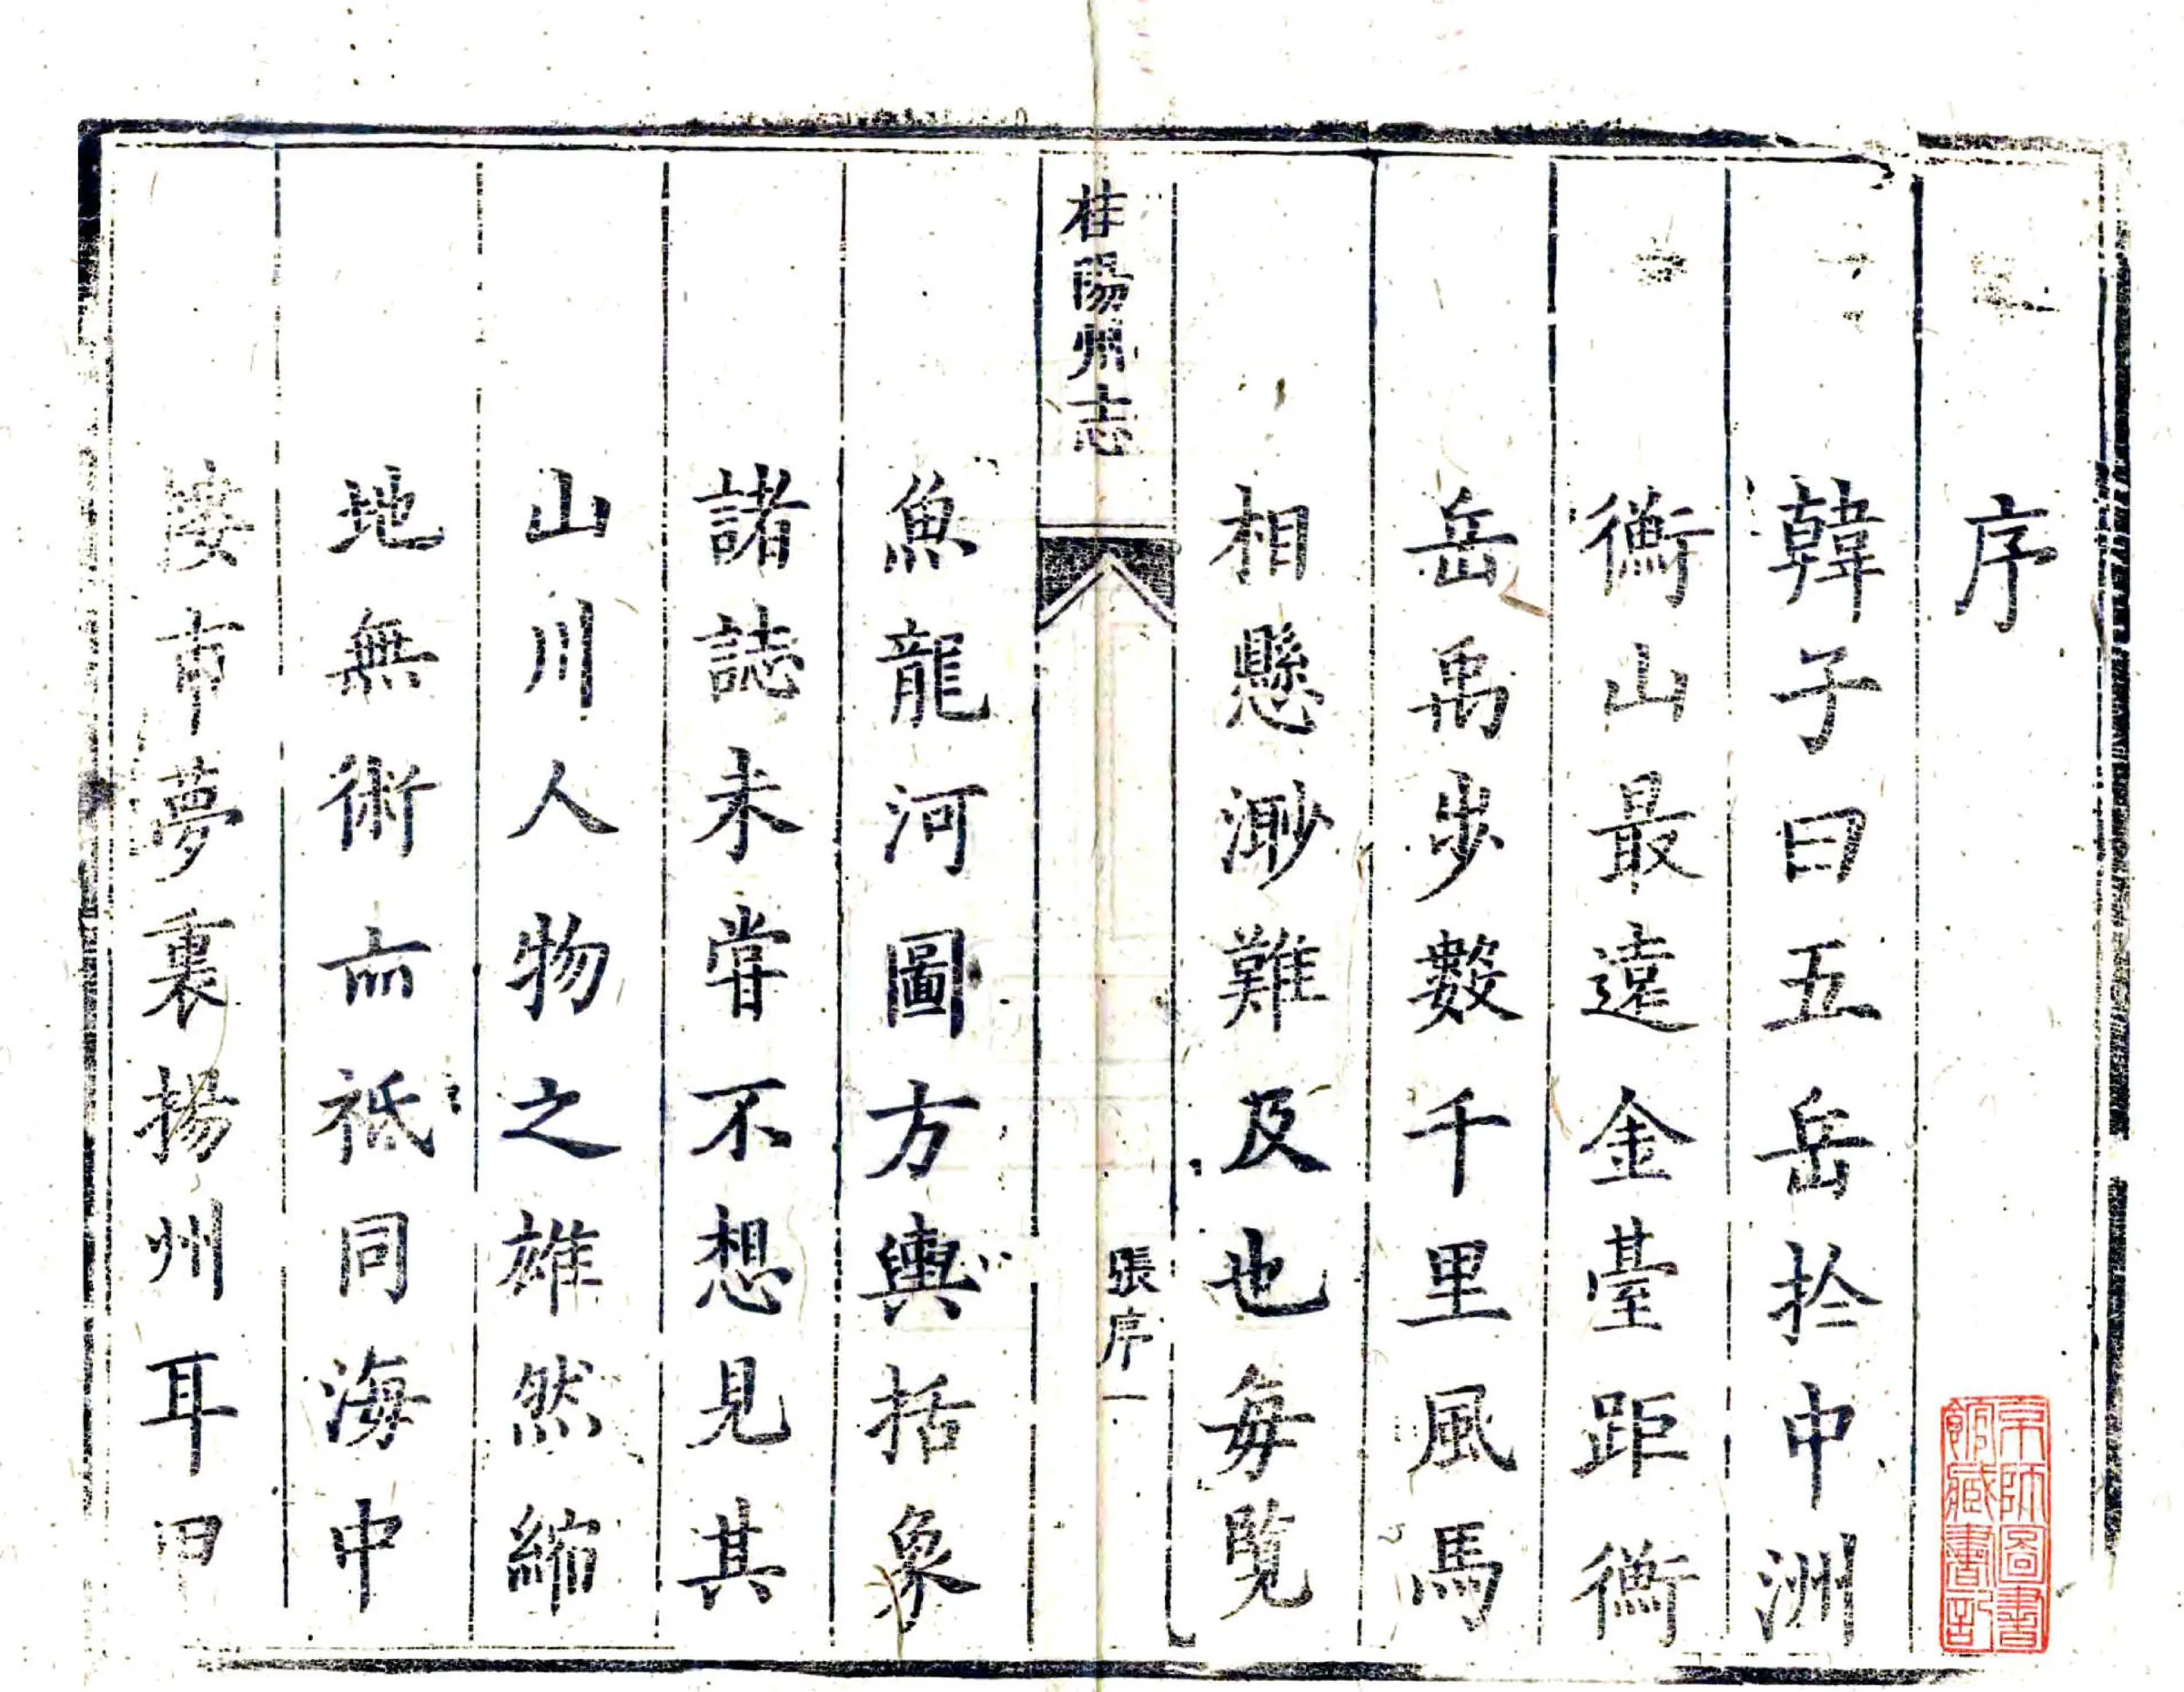 序
韓子曰五岳扵中洲
衡山最遠金臺距衡
岳禹步數千里風馬
相懸渺難及也每覧
桂陽州志
張序一
魚龍河圖方輿括象
諸誌未嘗不想見其
山川人物之雄然縮
地無術亦祗同海中
市夢裏揚州耳
京師圖書
館藏書記